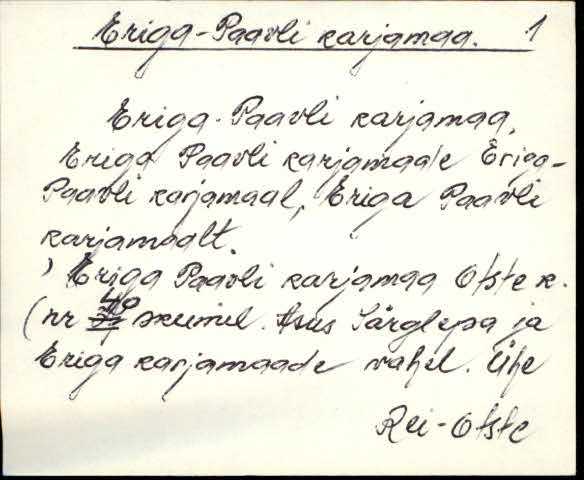 Eriga-Paavli karjamaa. 1
Eriga-Paavli karjamaa,
Eriga Paavli karjamaale Eriga-
Paavli karjamaal, Eriga Paavli
karjamaalt.
) Eriga Paavli karjamaa Otste k.
(nr 40 skeemil. Asus Särglepa ja
Eriga karjamaade vahel. Ühe
Rei-Otste